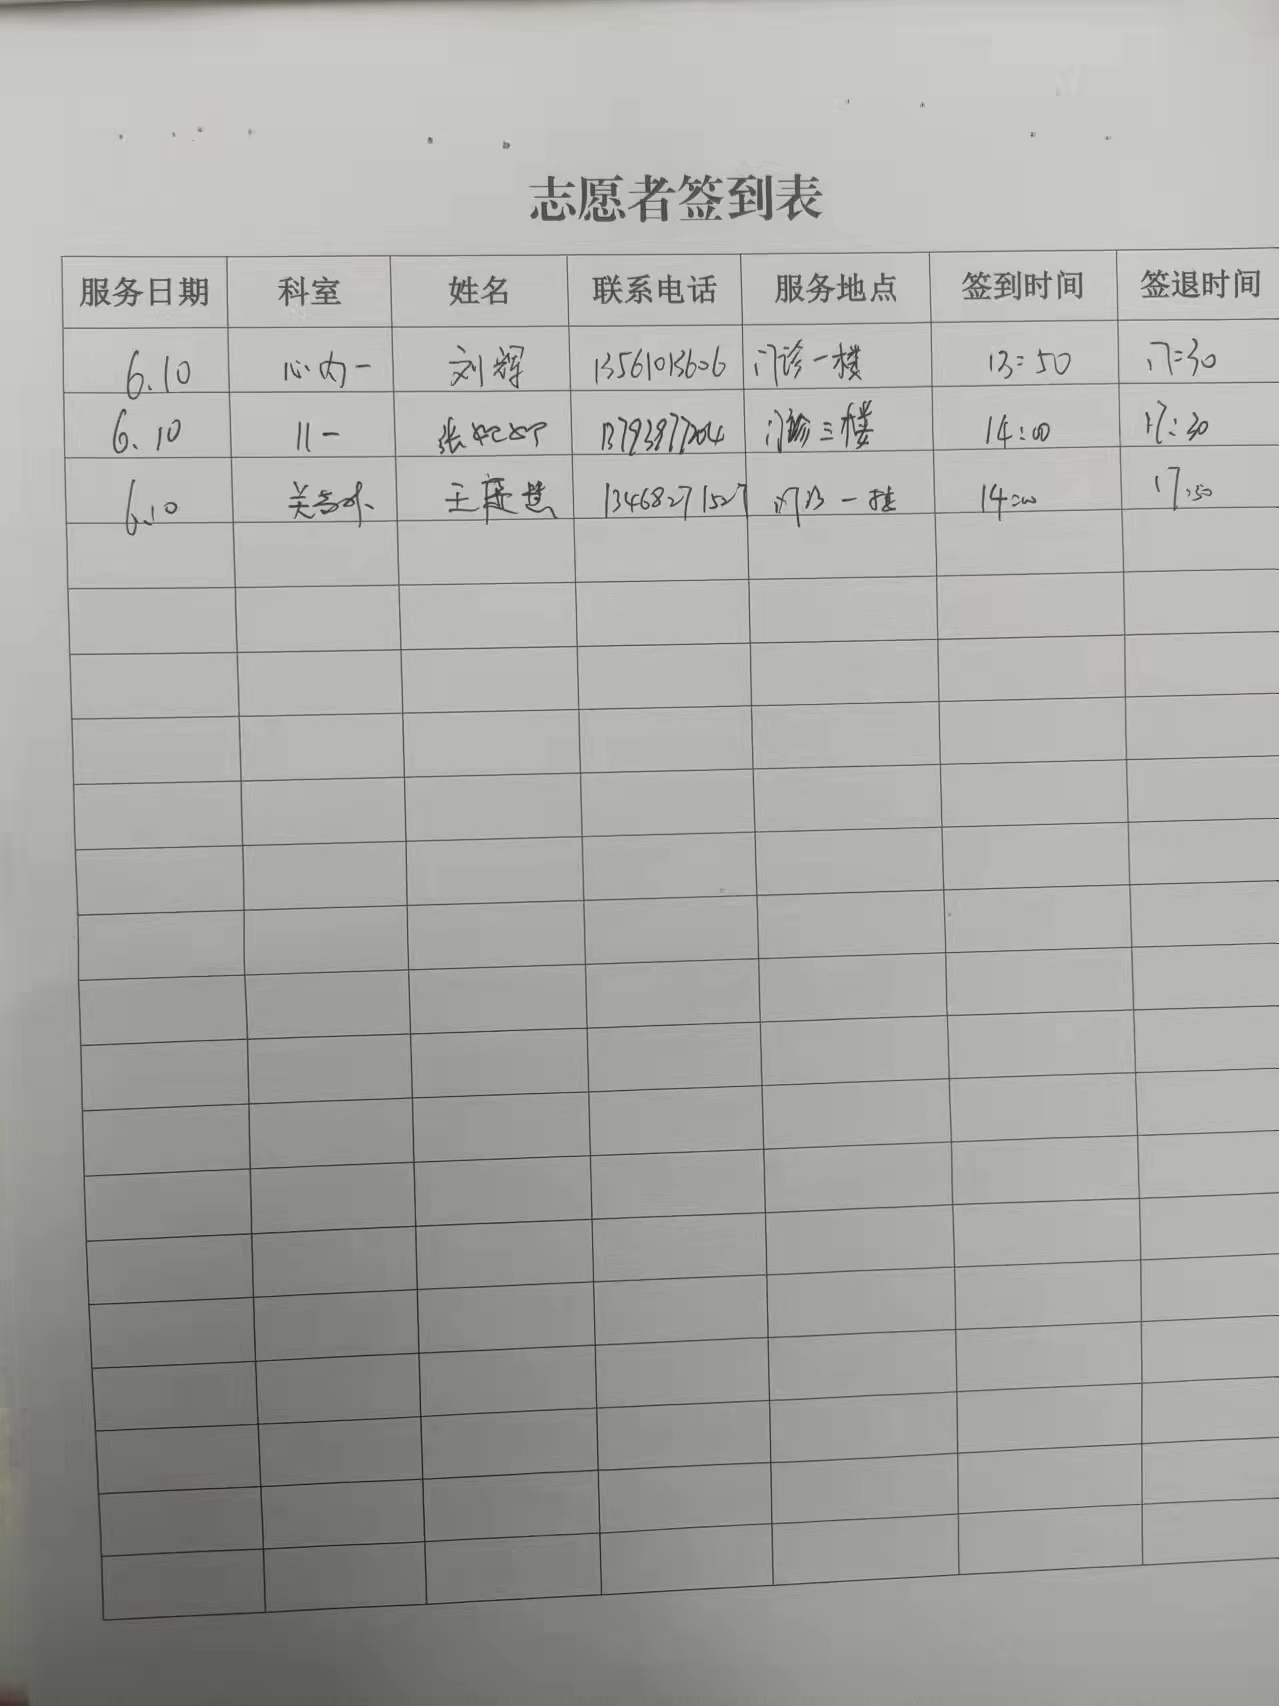 志愿者签到表
服务日期 科室 姓名 联系电话 服务地点 签到时间 签退时间
6.10 心内一 刘辉 13561013606 门诊一楼 13:50 17:30
6.10 儿一 张 门诊三楼 14:00 17:30
6.10 王 13468271527 门诊一楼 14:00